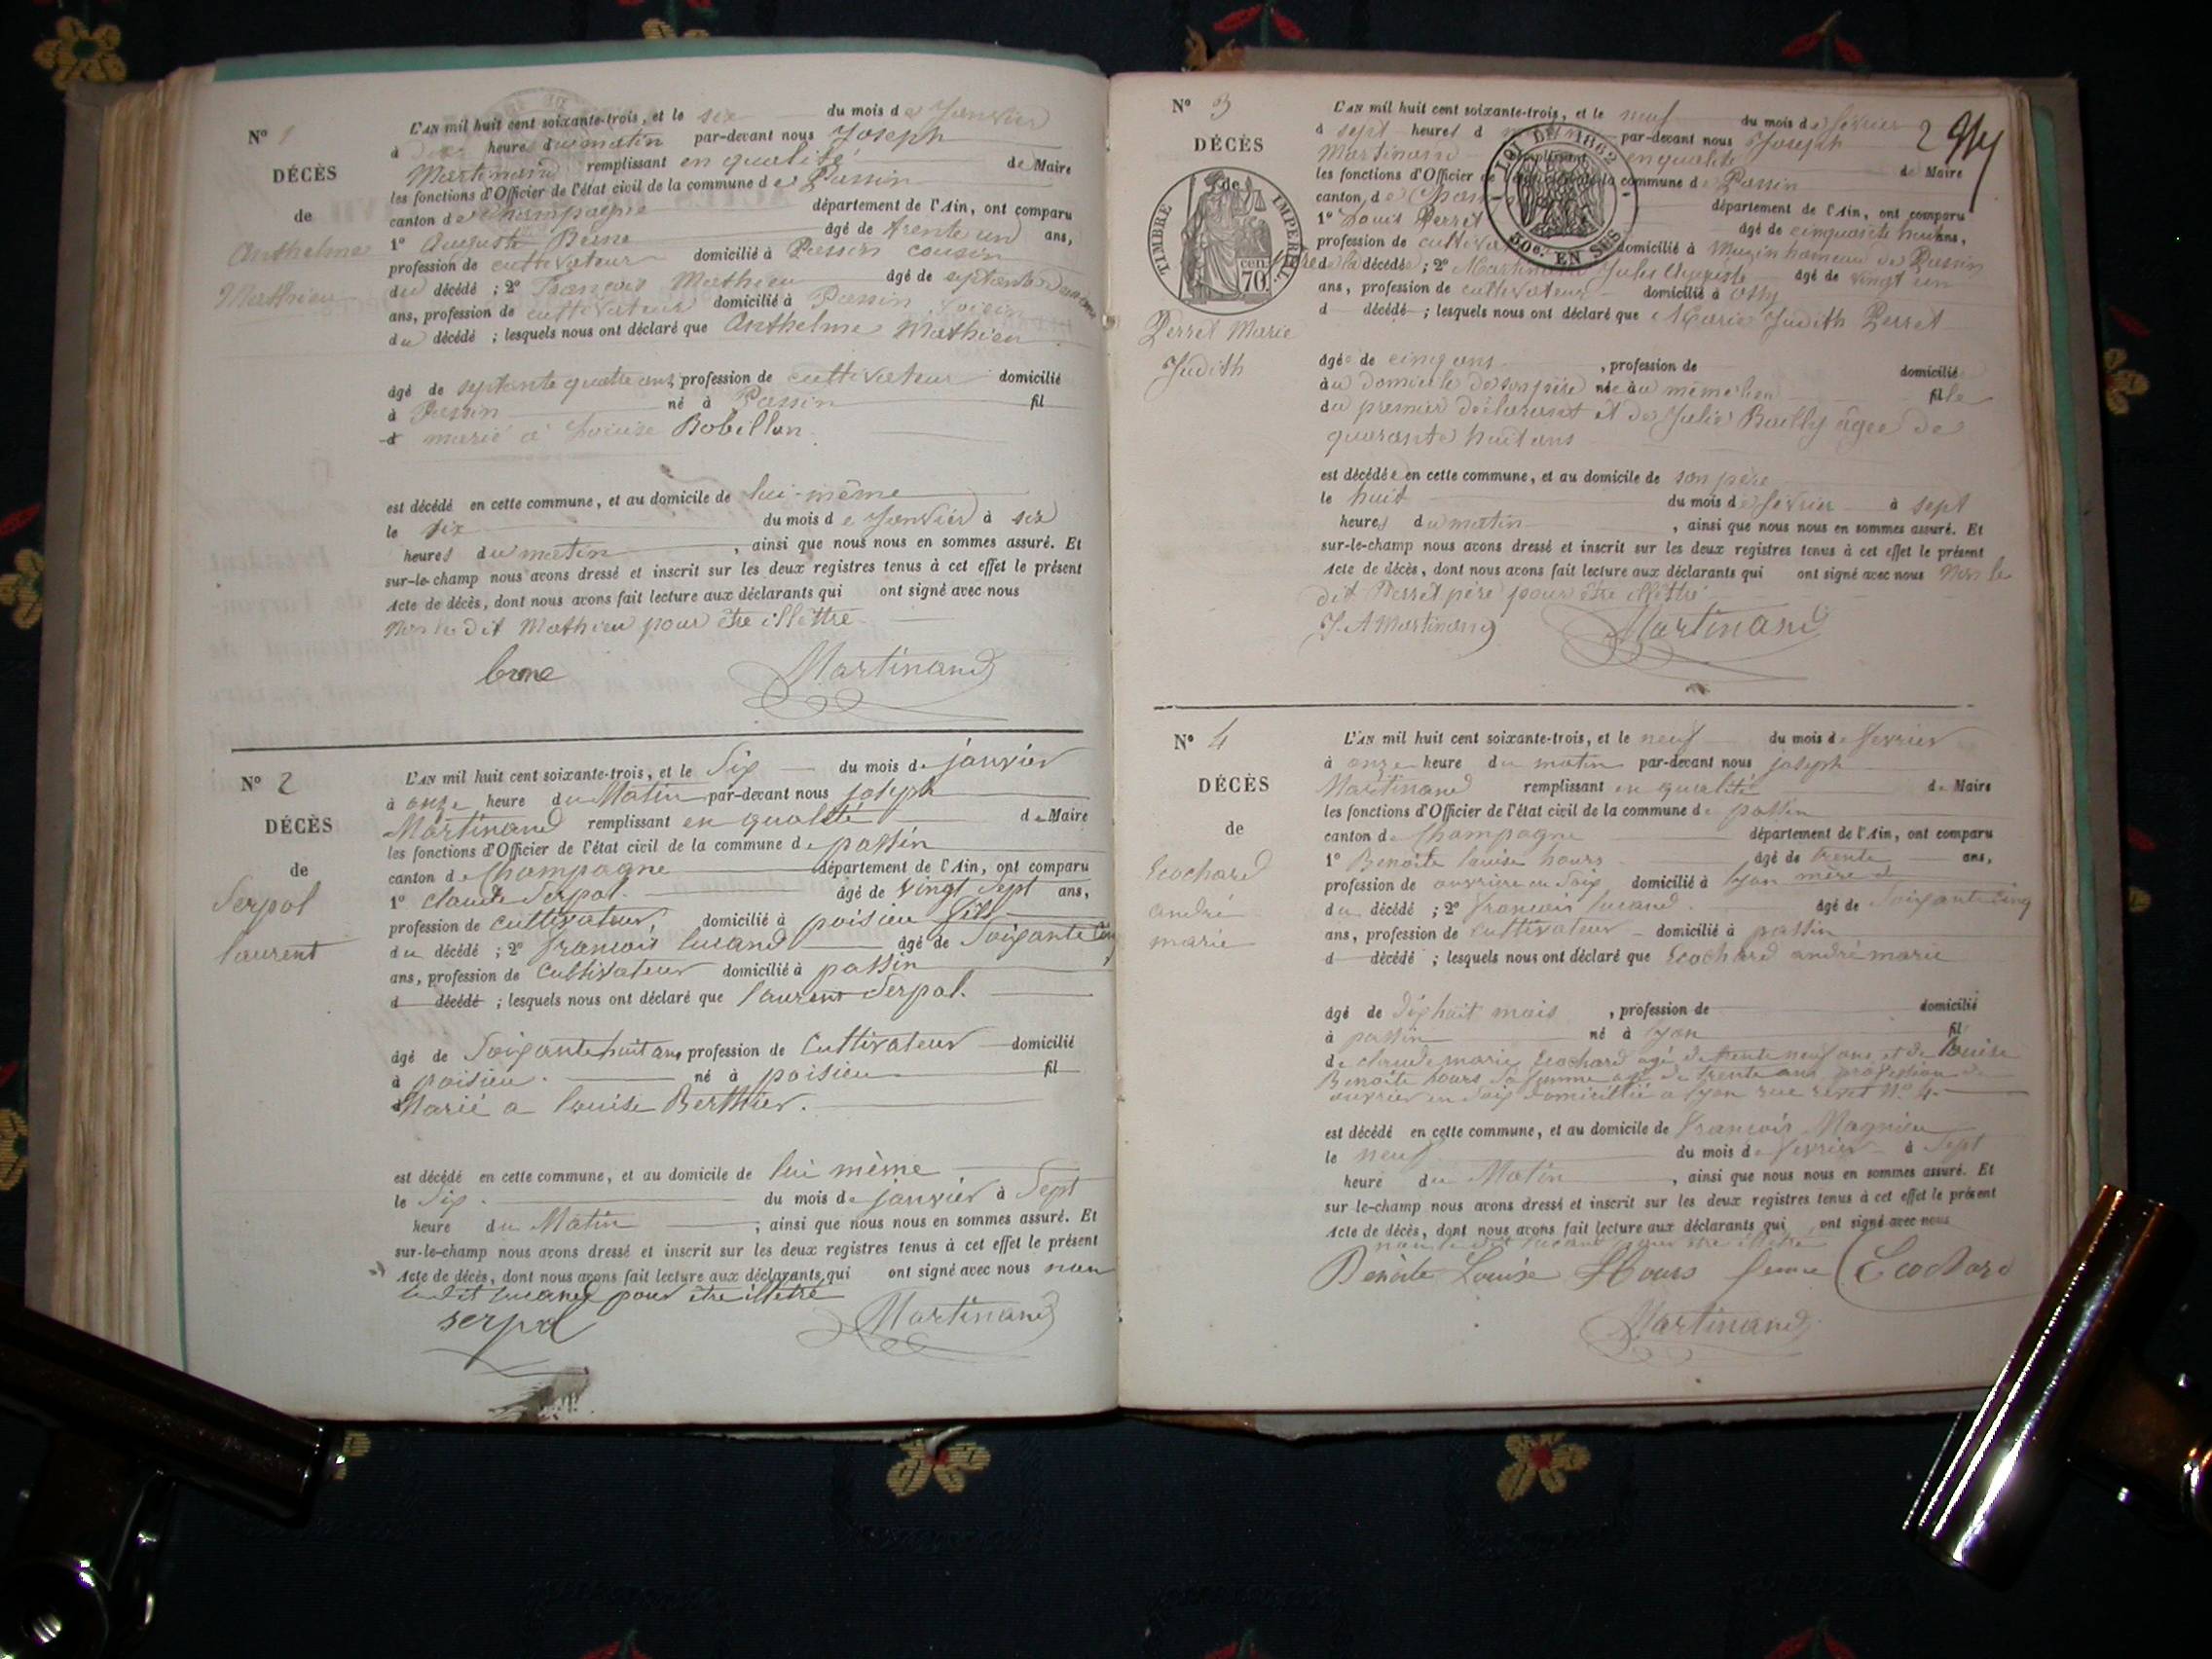 N° 1
DÉCÈS
de
Anthelme
Mathieu
L'AN mil huit cent soixante-trois, et le six du mois de Janvier
à heure du matin par-devant nous Joseph
Martinand remplissant en qualité de Maire
les fonctions d'Officier de l'état civil de la commune de Passin
canton de Champagne département de l'Ain, ont comparu
1° Auguste Berne âgé de trente un ans,
profession de cultivateur domicilié à Passin cousin
du décédé ; 2° François Mathieu âgé de septante deux
ans, profession de cultivateur domicilié à Passin voisin
du décédé ; lesquels nous ont déclaré que Anthelme Mathieu
âgé de septante quatre ans profession de cultivateur domicilié
à Passin né à Passin fil
d marié à Louise Bobillon.
est décédé en cette commune, et au domicile de lui-même
le six du mois de Janvier à six
heures du matin , ainsi que nous nous en sommes assuré. Et
sur-le-champ nous avons dressé et inscrit sur les deux registres tenus à cet effet le présent
Acte de décès, dont nous avons fait lecture aux déclarants qui ont signé avec nous
non le dit Mathieu pour être illettré
berne Martinand
N° 2
DÉCÈS
de
Serpol
laurent
L'AN mil huit cent soixante-trois, et le Six du mois de janvier
à onze heure du Matin par-devant nous joseph
Martinand remplissant en qualité de Maire
les fonctions d'Officier de l'état civil de la commune de passin
canton de Champagne département de l'Ain, ont comparu
1° claude Serpol. âgé de vingt Sept ans,
profession de cultivateur domicilié à poisieu fils
du décédé ; 2° francois lucand âgé de Soixante
ans, profession de Cultivateur domicilié à passin
d décédé ; lesquels nous ont déclaré que laurent Serpol.
âgé de Soixante huit ans profession de Cultivateur domicilié
à poisieu. né à poisieu fil
d Marié a louise Berthier.
est décédé en cette commune, et au domicile de lui même
le Six. du mois de janvier à Sept
heure du Matin ; ainsi que nous nous en sommes assuré. Et
sur-le-champ nous avons dressé et inscrit sur les deux registres tenus à cet effet le présent
Acte de décès, dont nous avons fait lecture aux déclarants qui ont signé avec nous non
le dit lucand pour être illetré
serpol Martinand
N° 3
DÉCÈS
de
TIMBRE IMPÉRIAL
70 cen.
Perret Marie
Judith
LOI DE 1862
50c. EN SUS
2
L'AN mil huit cent soixante-trois, et le neuf du mois de février
à sept heures d par-devant nous Joseph
Martinand remplissant en qualité de Maire
les fonctions d'Officier de l'état civil de la commune de Passin
canton de département de l'Ain, ont comparu
1° Louis Perret âgé de cinquante huit ans,
profession de domicilié à Muzin hameau de Passin
père de la décédée ; 2° Martinand Jules Auguste âgé de vingt un
ans, profession de cultivateur domicilié à
d décédé ; lesquels nous ont déclaré que Marie Judith Perret
âgée de cinq ans , profession de domicilié
au domicile de son père née au même lieu fille
du premier déclarant et de Julie Bailly âgée de
quarante huit ans
est décédée en cette commune, et au domicile de son père
le huit du mois de février à sept
heures du matin , ainsi que nous nous en sommes assuré. Et
sur-le-champ nous avons dressé et inscrit sur les deux registres tenus à cet effet le présent
Acte de décès, dont nous avons fait lecture aux déclarants qui ont signé avec nous Non le
dit Perret père pour être illettré
J. A Martinand Martinand
N° 4
DÉCÈS
de
Ecochard
andré
marie
L'AN mil huit cent soixante-trois, et le neuf du mois de fevrier
à onze heure du matin par-devant nous joseph
Martinand remplissant en qualité de Maire
les fonctions d'Officier de l'état civil de la commune de passin
canton de Champagne département de l'Ain, ont comparu
1° Benoite louise hours âgé de trente ans,
profession de ouvriere en Soie domicilié à lyon mère
du décédé ; 2° francois lucand. âgé de Soixante cinq
ans, profession de Cultivateur domicilié à passin
d décédé ; lesquels nous ont déclaré que Ecochard andré marie
âgé de dix huit mois , profession de domicilié
à passin né à lyon fil
de claude marie Ecochard agé de trente neuf ans et de louise
Benoite hours Sa femme agé de trente ans profession de
ouvrier en Soie domicillié a lyon rue N° 4
est décédé en cette commune, et au domicile de francois Magnieu
le neuf du mois de fevrier à Sept
heure du Matin , ainsi que nous nous en sommes assuré. Et
sur-le-champ nous avons dressé et inscrit sur les deux registres tenus à cet effet le présent
Acte de décès, dont nous avons fait lecture aux déclarants qui ont signé avec nous
non le dit lucand pour etre illétré
Benoite Louise Hours femme Ecochard
Martinand